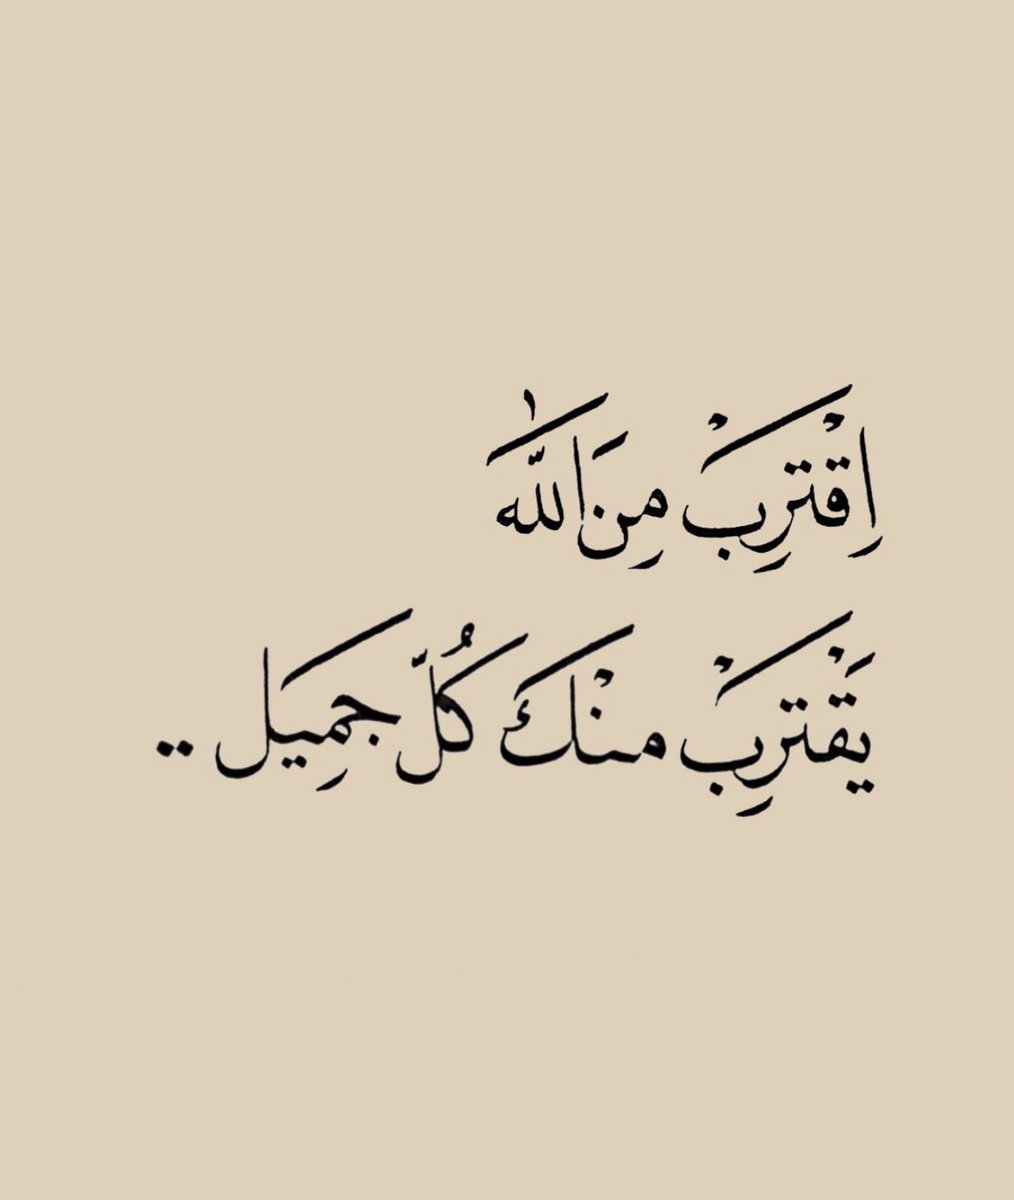 اِقْتَرِبْ مِنَ اللَّه
يَقْتَرِبْ منْكَ كُلّ جَمِيل ..